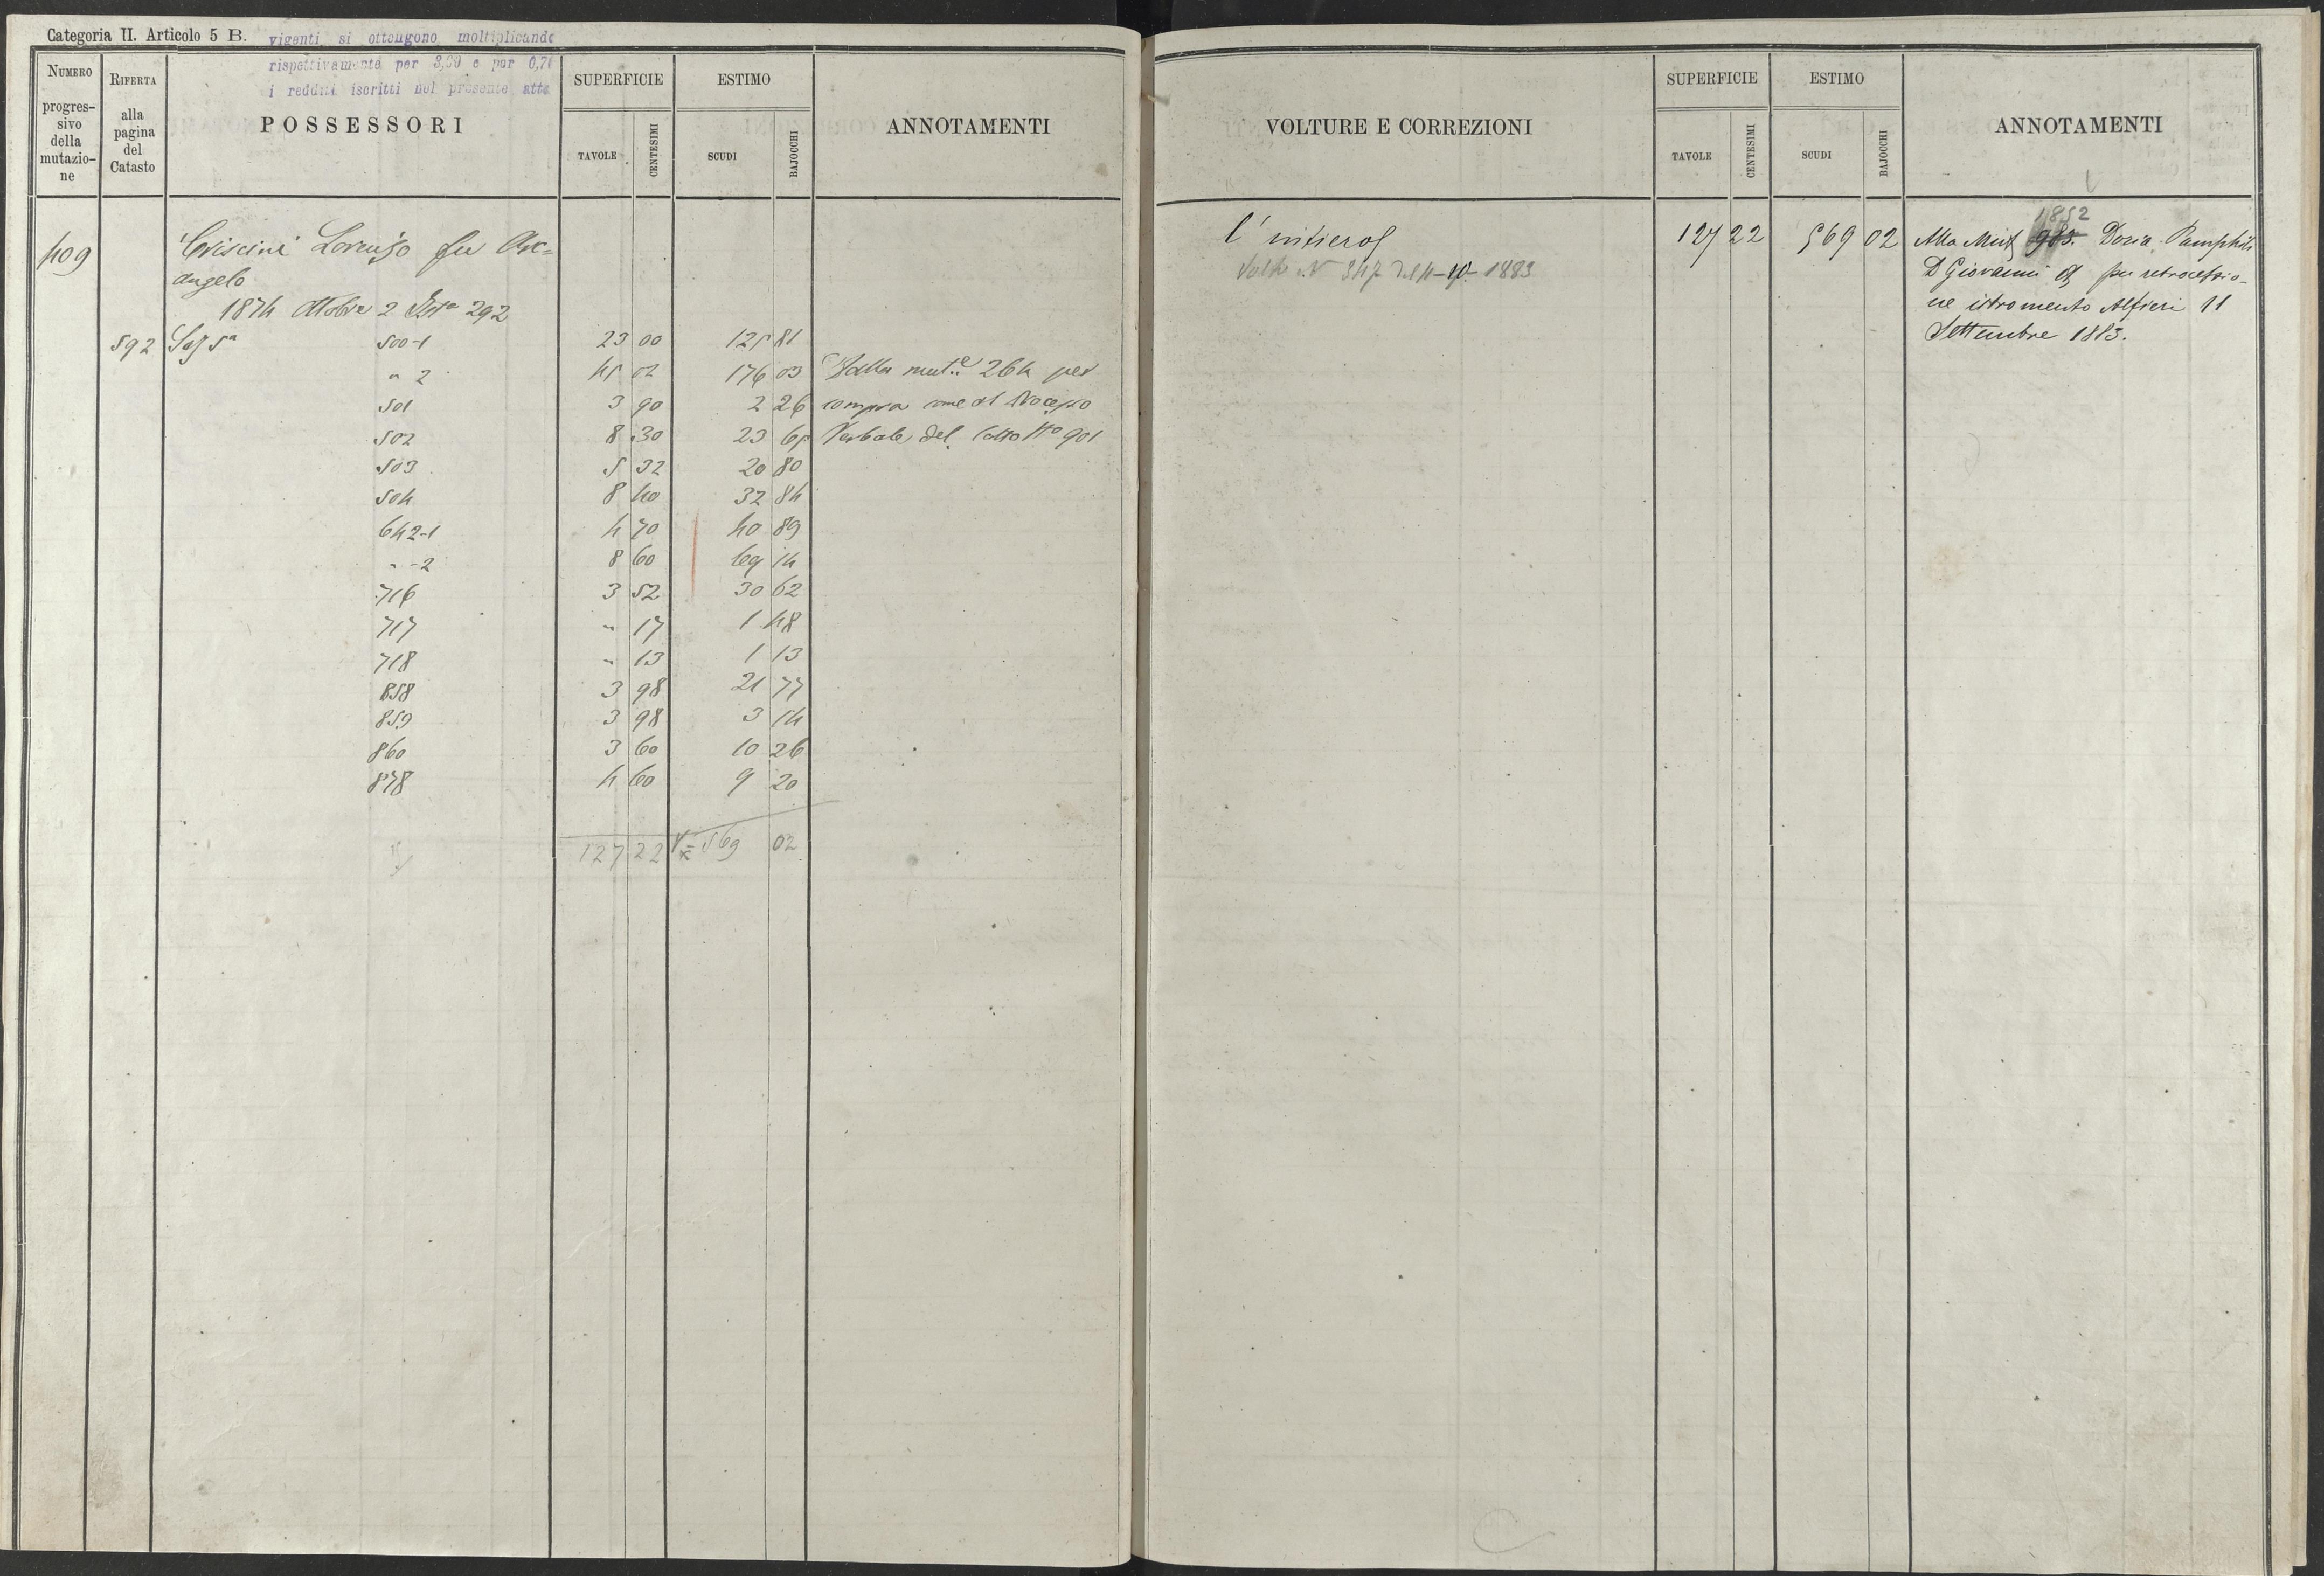 Categoria II. Articolo 5 B.
vigenti si ottengono moltiplicando
rispettivamente per 3,00 e per 0,70
i redditi iscritti nel presente atto
NUMERO
progres-
sivo
della
mutazio-
ne
RIFERTA
alla
pagina
del
Catasto
POSSESSORI
SUPERFICIE
TAVOLE
CENTESIMI
ESTIMO
SCUDI
BAJOCCHI
ANNOTAMENTI
409
Lorenzo fu Arc-
angelo
1874 Ottobre 2 292
592 Sez 5ª 500-1 23 00 125 81
" 2 45 02 176 03 Dalla mut.e 264 per
501 3 90 2 26 compra come al Processo
502 8 30 23 65 Verbale del 901
503 5 32 20 80
504 8 40 32 84
642-1 4 70 40 89
" -2 8 60 69 14
716 3 52 30 62
717 " 17 1 48
718 " 13 1 13
858 3 98 21 77
859 3 98 3 14
860 3 60 10 26
878 4 60 9 20
127 22 569 02
VOLTURE E CORREZIONI
SUPERFICIE
TAVOLE
CENTESIMI
ESTIMO
SCUDI
BAJOCCHI
ANNOTAMENTI
l'intiero 127 22 569 02
N 347 del 4-10-1883
1852
Alla Mut 983. Doria Pamphili
D Giovanni per retrocessio-
ne istromento Alfieri 11
Settembre 1883.